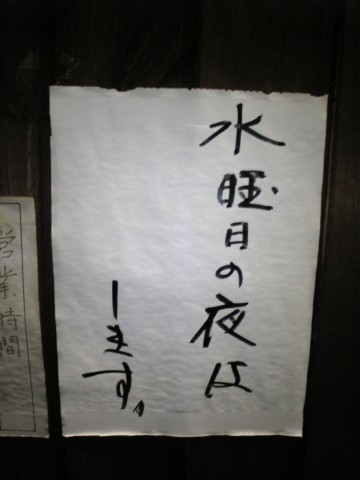 水曜日の夜は
します。
営業時間